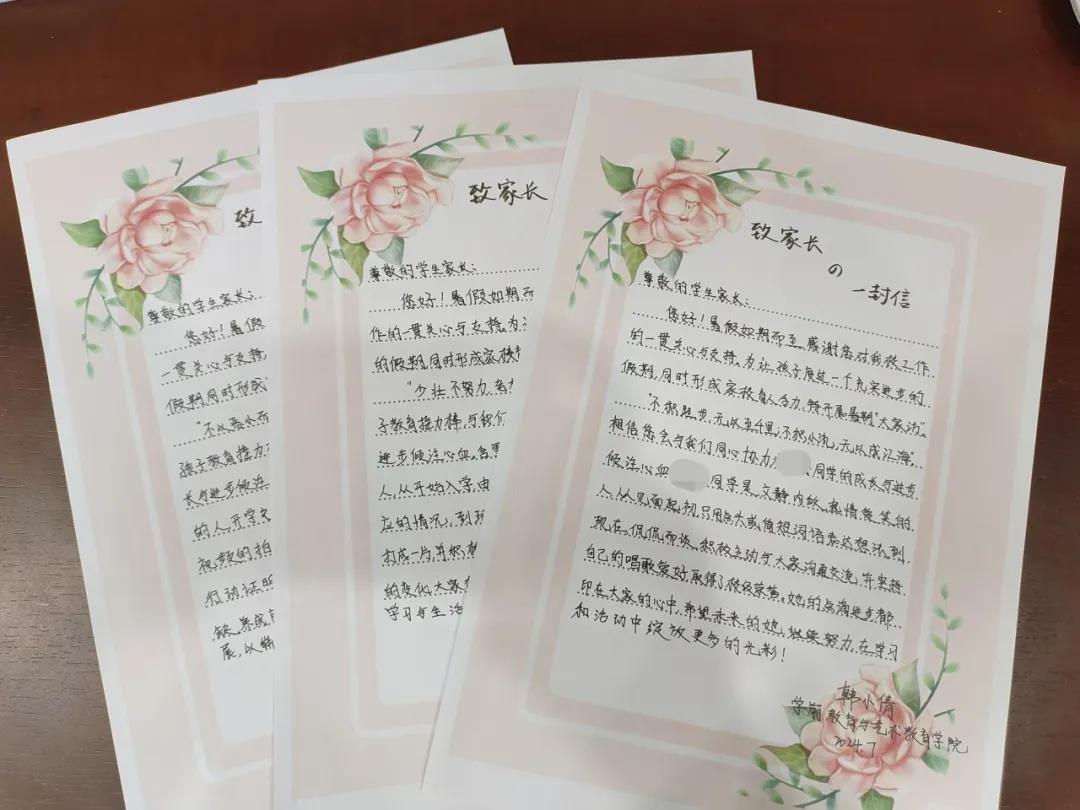 致家
尊敬的学生家长:
您好!暑假
一贯关心与支持,
假期,同时形成
孩子教育接力
长与进步倾注
的人,开学
视频的拍
行动证明
致家长
尊敬的学生家长:
您好!暑假如期而
作的一贯关心与支持,为
的假期,同时形成家校
"少壮不努力,老
子教育接力棒,与我们
进步倾注心血,
人,从开始入学,由
应的情况,到现
打成一片,并积
的变化,大家
学习与生活
致家长
の
一封信
尊敬的学生家长:
您好!暑假如期而至,感谢您对我校工作
的一贯关心与支持,为让孩子度过一个充实进步的
假期,同时形成家校育人合力,特开展暑期"大家访"。
"不积跬步,无以至千里;不积小流,无以成江海",
相信您会与我们同心协力 同学的成长与进步
倾注心血 同学是文静内敛、热情爱笑的
人,从见面起初只用点头或简短词语表达想法,到
现在,侃侃而谈,积极主动与大家沟通交流,并坚持
自己的唱歌爱好,取得了校级荣誉。她的点滴进步都
印在大家的心中,希望未来的她,继续努力,在学习
和活动中绽放更多的光彩!
韩小倩
学前教育与艺术教育学院
2024.7